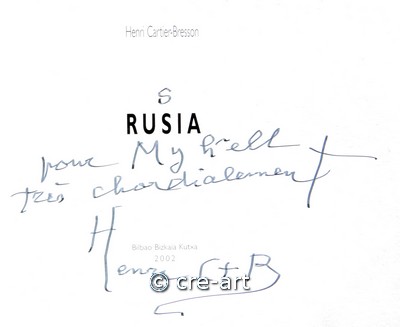 Henri Cartier-Bresson
s
RUSIA
pour
très chordialement
H
Bilbao Bizkaia Kutxa
2002
Henri
© cre-art